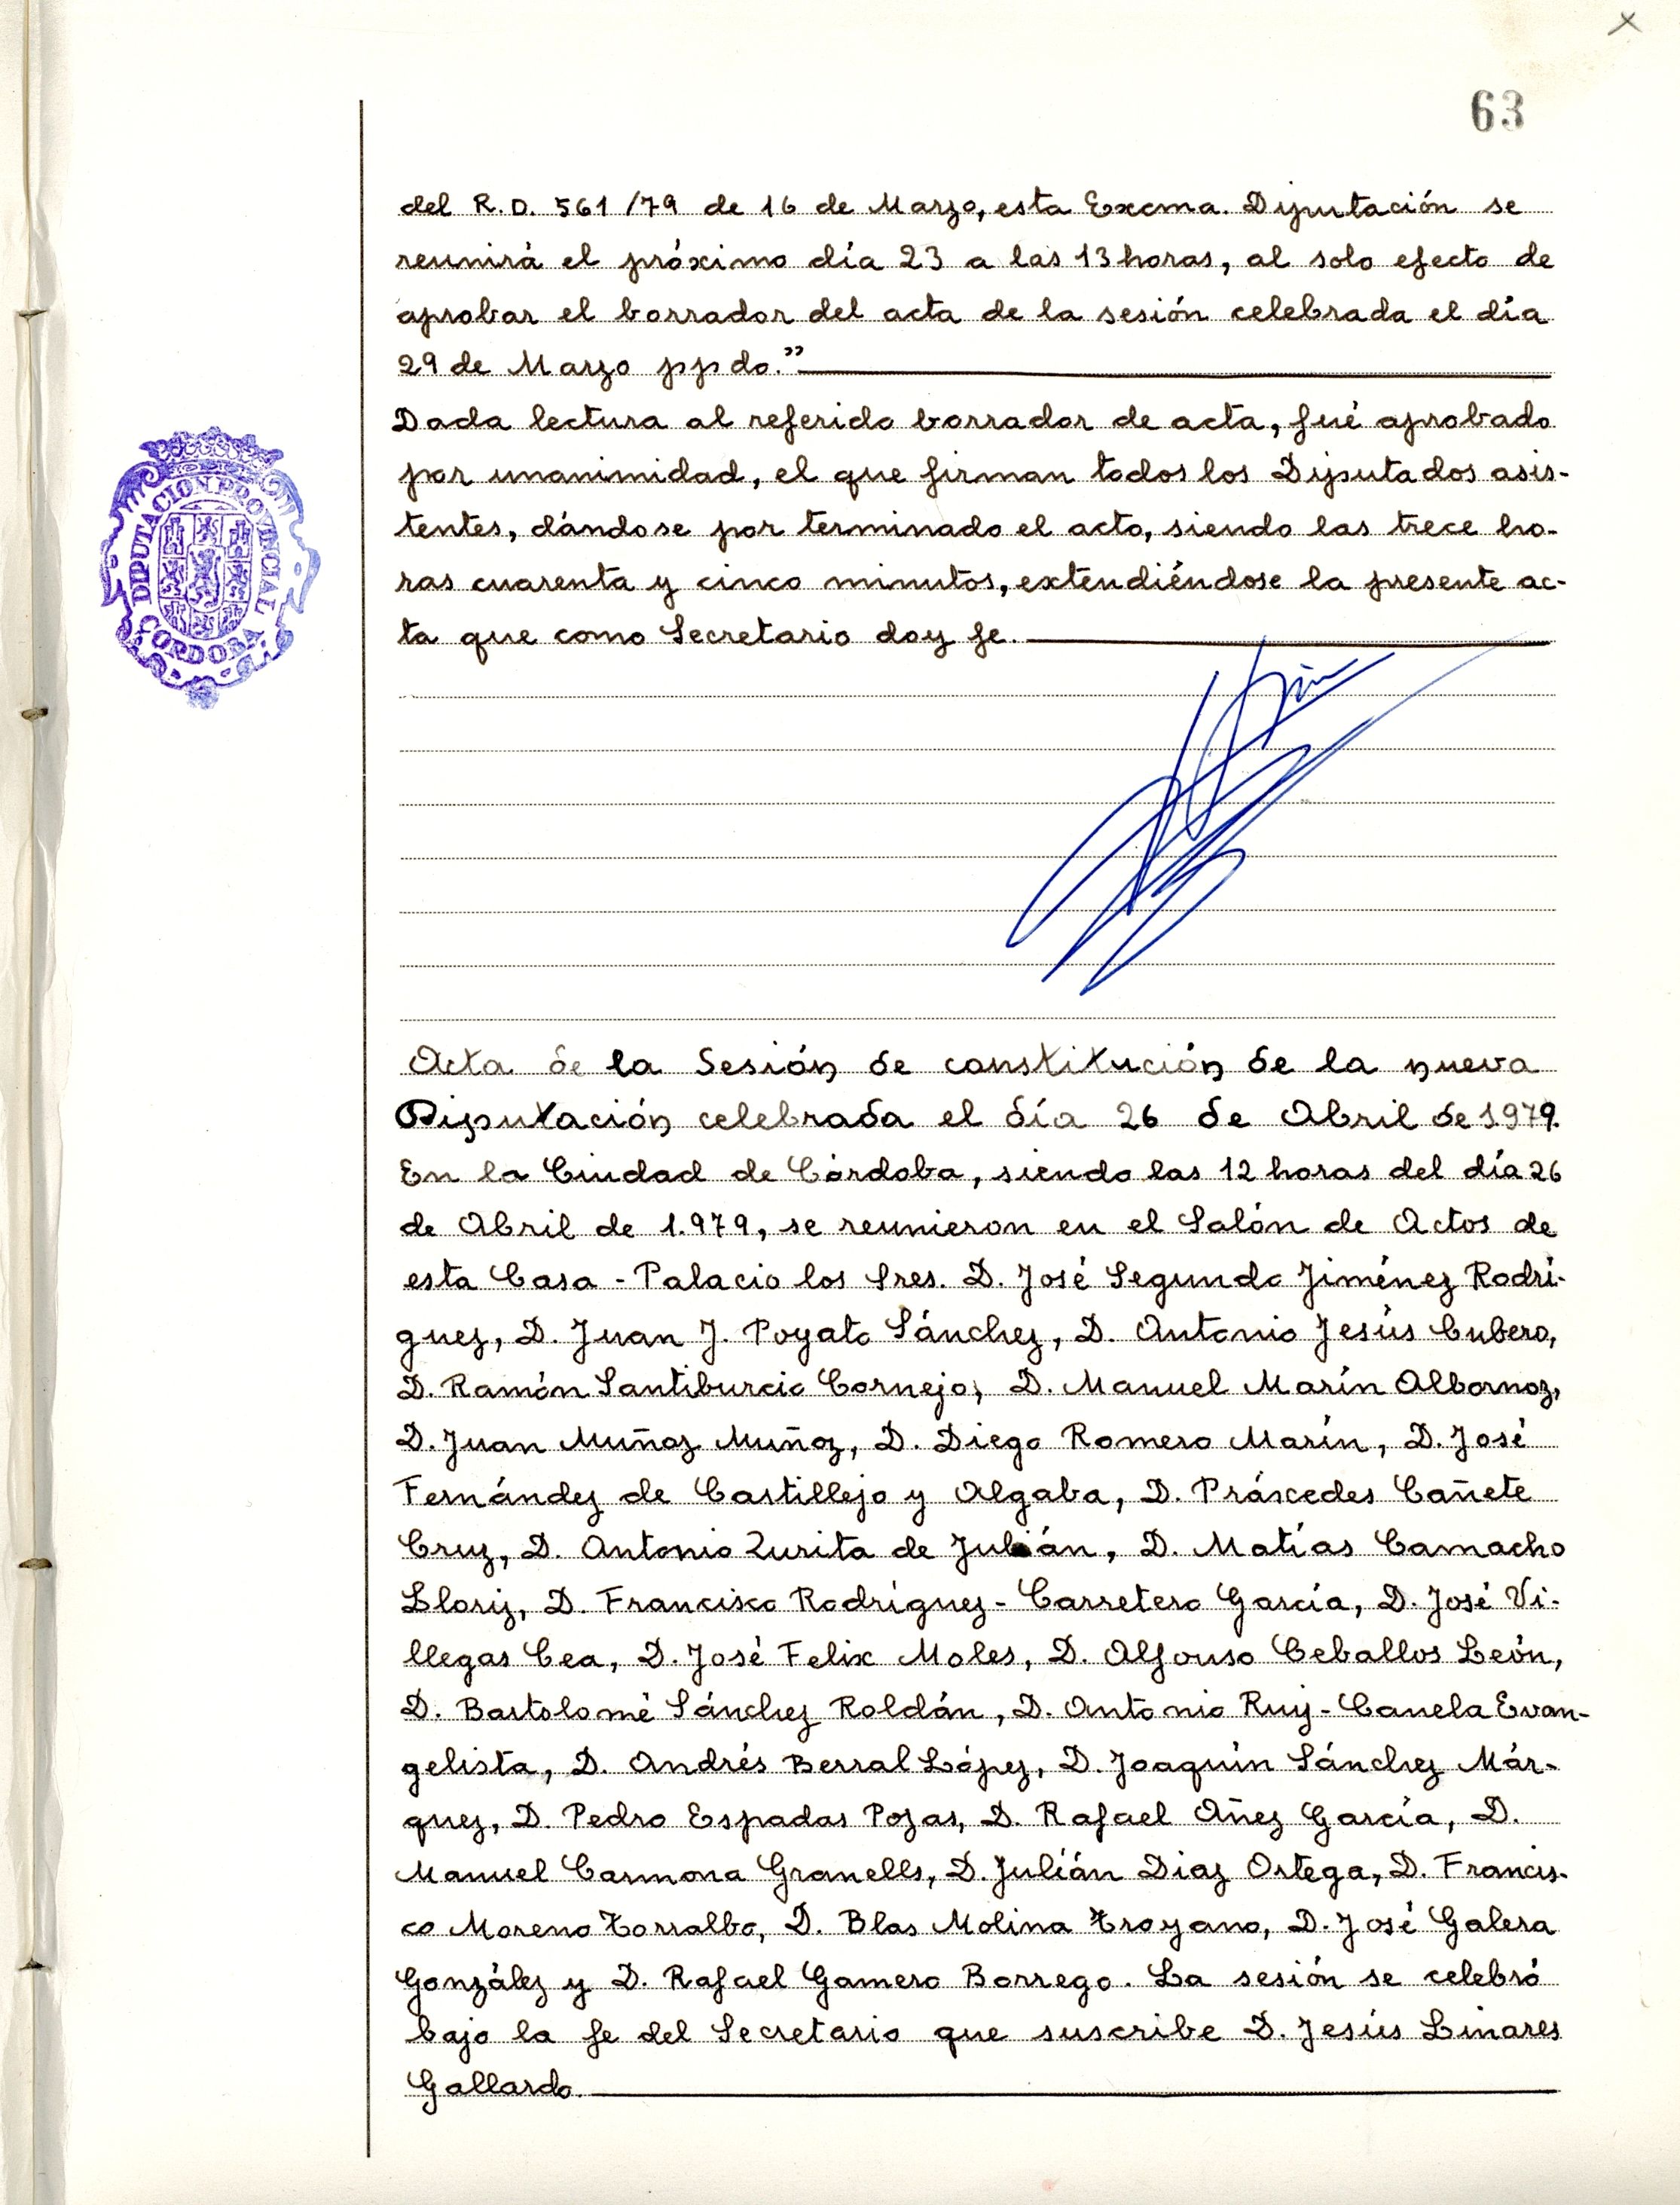 63
del R.D. 561/79 de 16 de Marzo, esta Excma. Diputación se
reunirá el próximo día 23 a las 13 horas, al solo efecto de
aprobar el borrador del acta de la sesión celebrada el día
29 de Marzo ppdo.”
Dada lectura al referido borrador de acta, fué aprobado
por unanimidad, el que firman todos los Diputados asis-
tentes, dándose por terminado el acto, siendo las trece ho-
ras cuarenta y cinco minutos, extendiéndose la presente ac-
ta que como Secretario doy fe.
DIPUTACION PROVINCIAL
CORDOBA
Acta de la Sesión de constitución de la nueva
Diputación celebrada el día 26 de Abril de 1979.
En la Ciudad de Córdoba, siendo las 12 horas del día 26
de Abril de 1.979, se reunieron en el Salón de Actos de
esta Casa-Palacio los Sres. D. José Segundo Jiménez Rodrí-
guez, D. Juan J. Poyato Sánchez, D. Antonio Jesús Cubero,
D. Ramón Santiburcio Cornejo, D. Manuel Marín Albornoz,
D. Juan Muñoz Muñoz, D. Diego Romero Marín, D. José
Fernández de Castillejo y Algaba, D. Práxcedes Cañete
Cruz, D. Antonio Zurita de Julián, D. Matías Camacho
Lloriz, D. Francisco Rodríguez-Carretero García, D. José Vi-
llegas Cea, D. José Felix Moles, D. Alfonso Ceballos León,
D. Bartolomé Sánchez Roldán, D. Antonio Ruiz-Canela Evan-
gelista, D. Andrés Berral López, D. Joaquín Sánchez Már-
quez, D. Pedro Espadas Pozas, D. Rafael Añez García, D.
Manuel Carmona Granells, D. Julián Diaz Ortega, D. Francis-
co Moreno Torralbo, D. Blas Molina Troyano, D. José Galera
González y D. Rafael Gamero Borrego. La sesión se celebró
bajo la fe del Secretario que suscribe D. Jesús Linares
Gallardo.